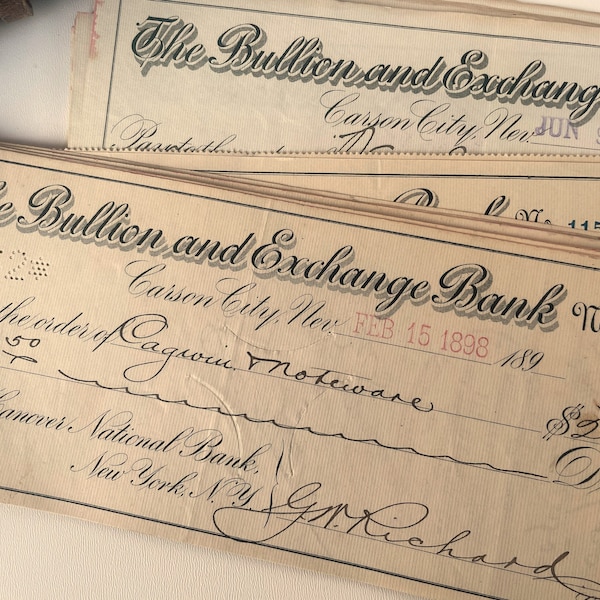 The Bullion and Exchang
Carson City, Nev. JUN 9
Pay to th
Bank No. 115
e Bullion and Exchange Bank N
2*
Carson City, Nev. FEB 15 1898 189
the order of Cagwin & Noteware
50 $2
Hanover National Bank,
New York, N.Y. G W Richard